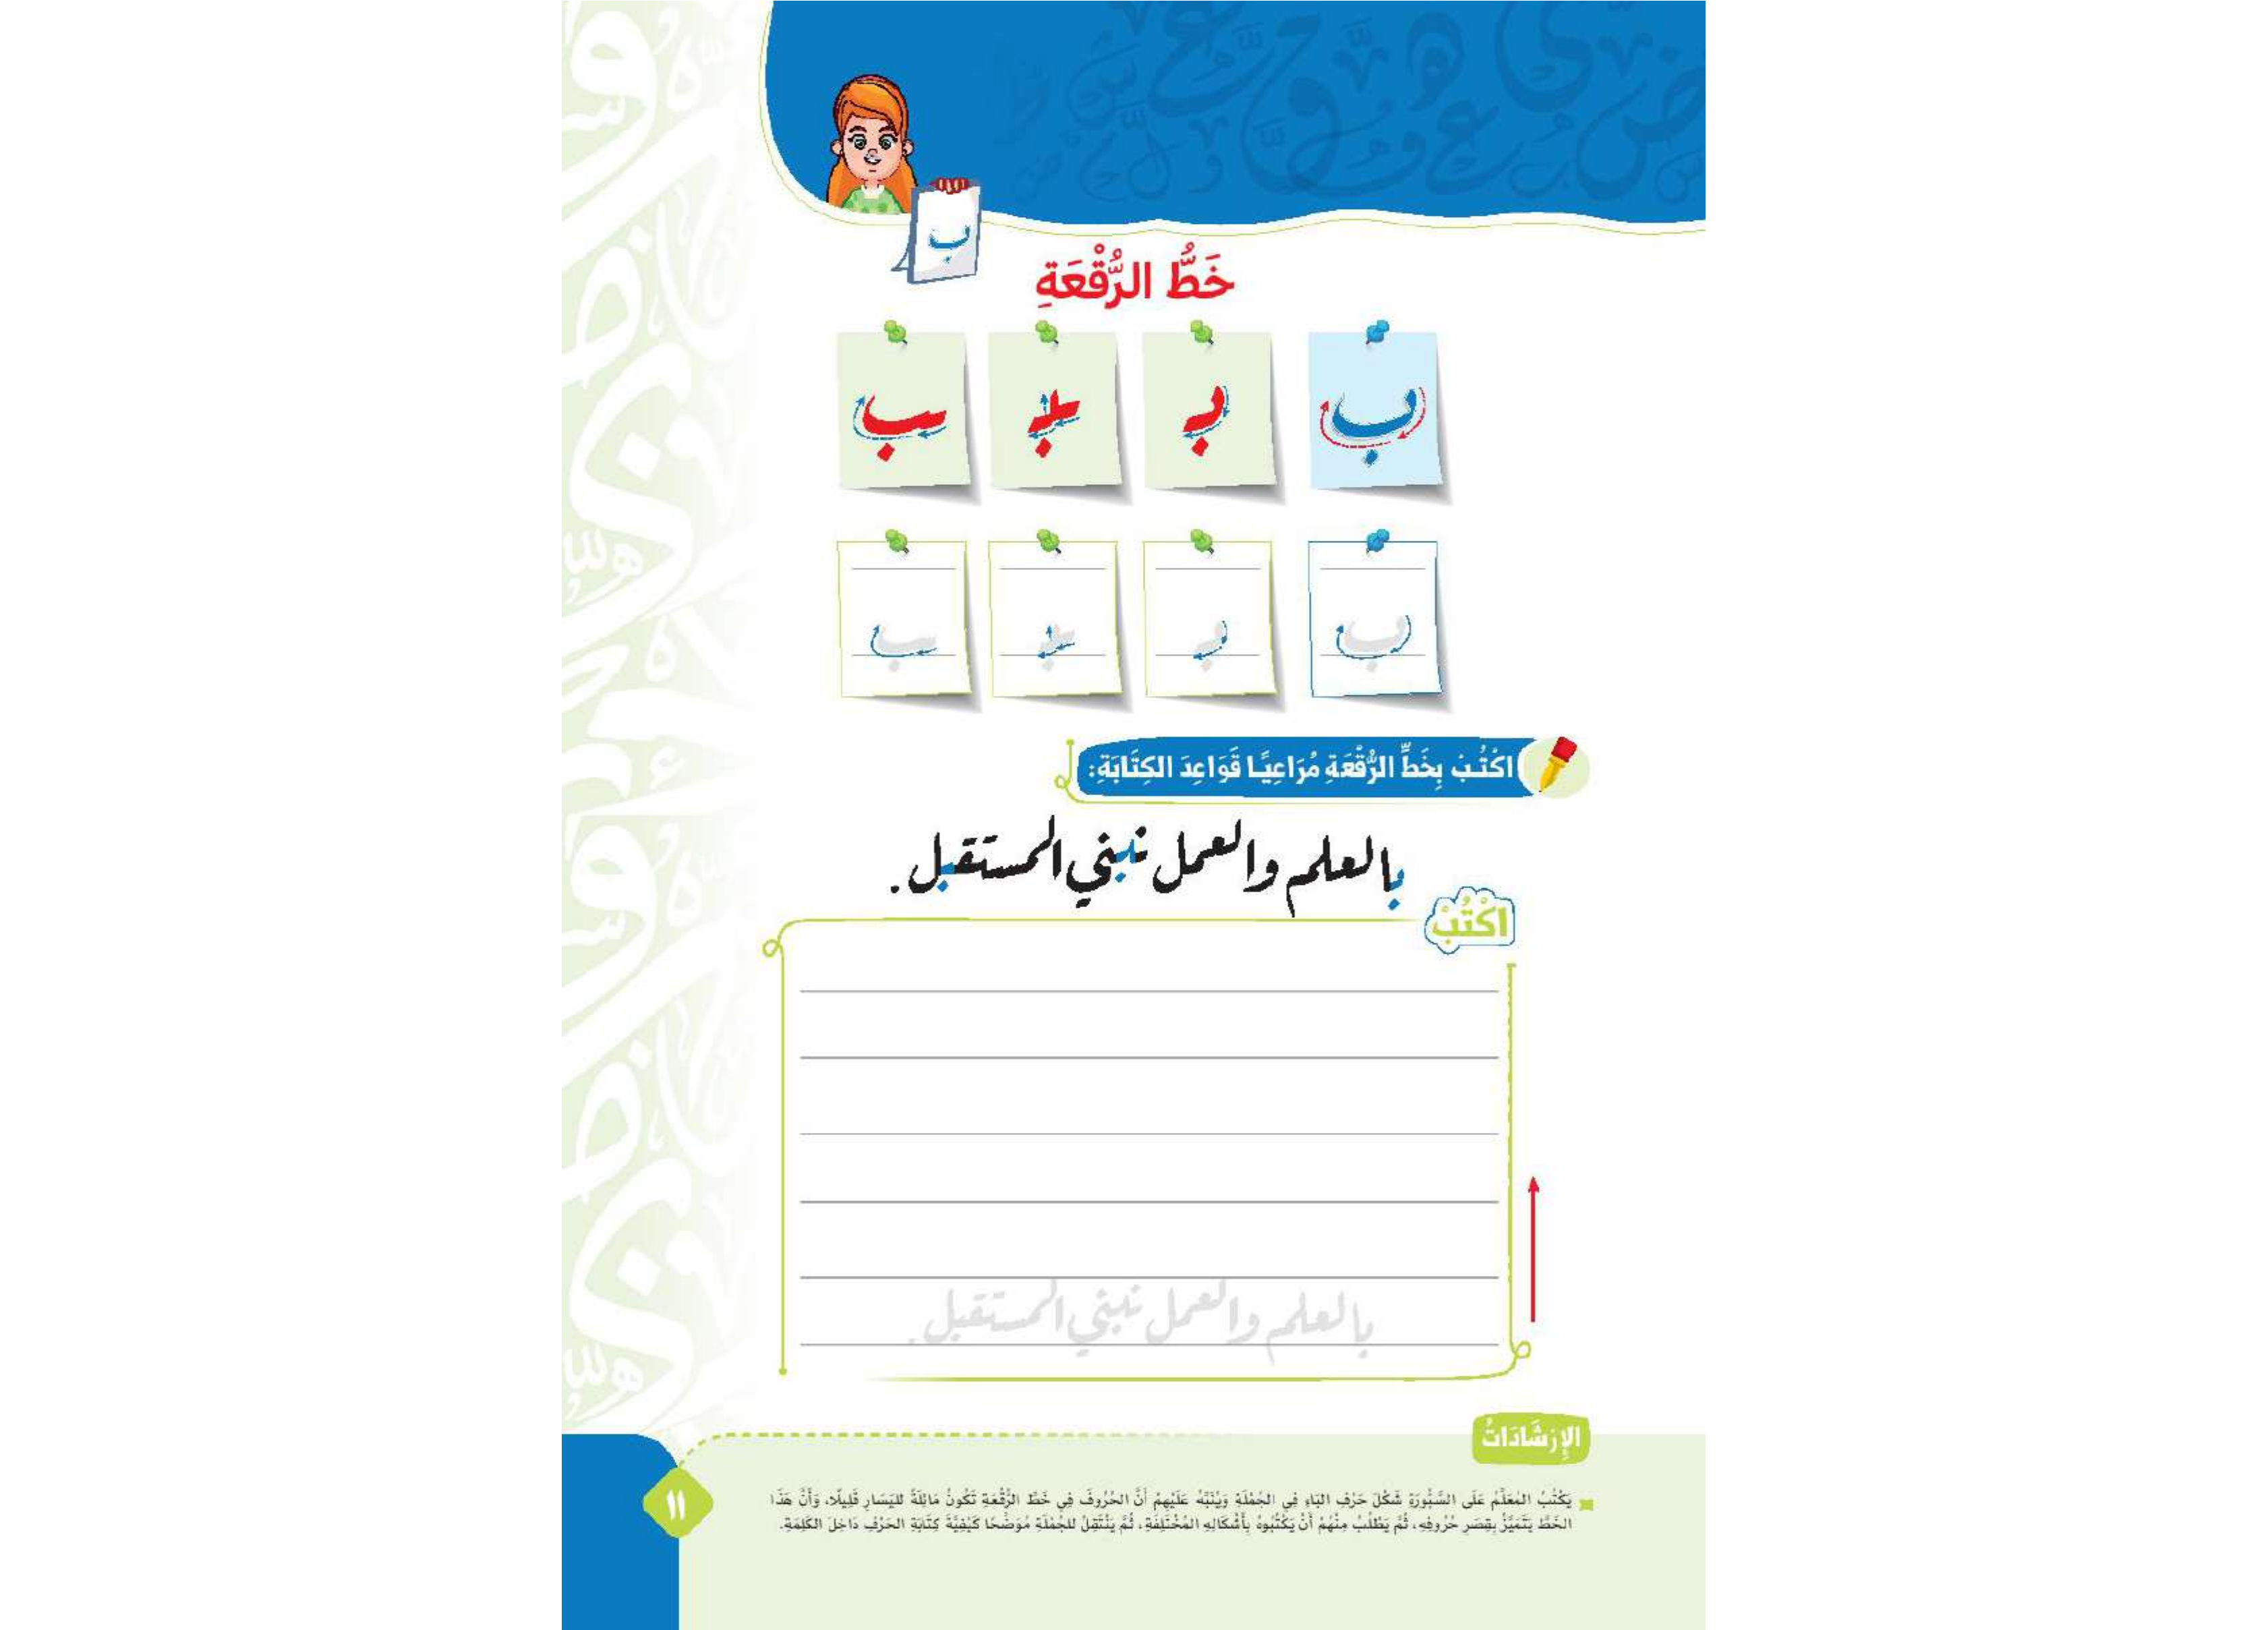 ب
خَطُّ الرُّقْعَةِ
ب بـ ـبـ ـب
ب بـ ـبـ ـب
اكْتُبْ بِخَطِّ الرُّقْعَةِ مُرَاعِيًا قَوَاعِدَ الكِتَابَةِ:
بالعلم والعمل نبني المستقبل.
اكْتُبْ
بالعلم والعمل نبني المستقبل.
الإِرْشَادَاتُ
يَكْتُبُ المُعَلِّمُ عَلَى السَّبُّورَةِ شَكْلَ حَرْفِ البَاءِ فِي الجُمْلَةِ وَيُنَبِّهُ عَلَيْهِمْ أَنَّ الحُرُوفَ فِي خَطِّ الرُّقْعَةِ تَكُونُ مَائِلَةً لليَسَارِ قَلِيلًا، وَأَنَّ هَذَا
الخَطَّ يَتَمَيَّزُ بِقِصَرِ حُرُوفِهِ، ثُمَّ يَطْلُبُ مِنْهُمْ أَنْ يَكْتُبُوهُ بِأَشْكَالِهِ المُخْتَلِفَةِ، ثُمَّ يَنْتَقِلُ للجُمْلَةِ مُوَضِّحًا كَيْفِيَّةَ كِتَابَةِ الحَرْفِ دَاخِلَ الكَلِمَةِ.
١١